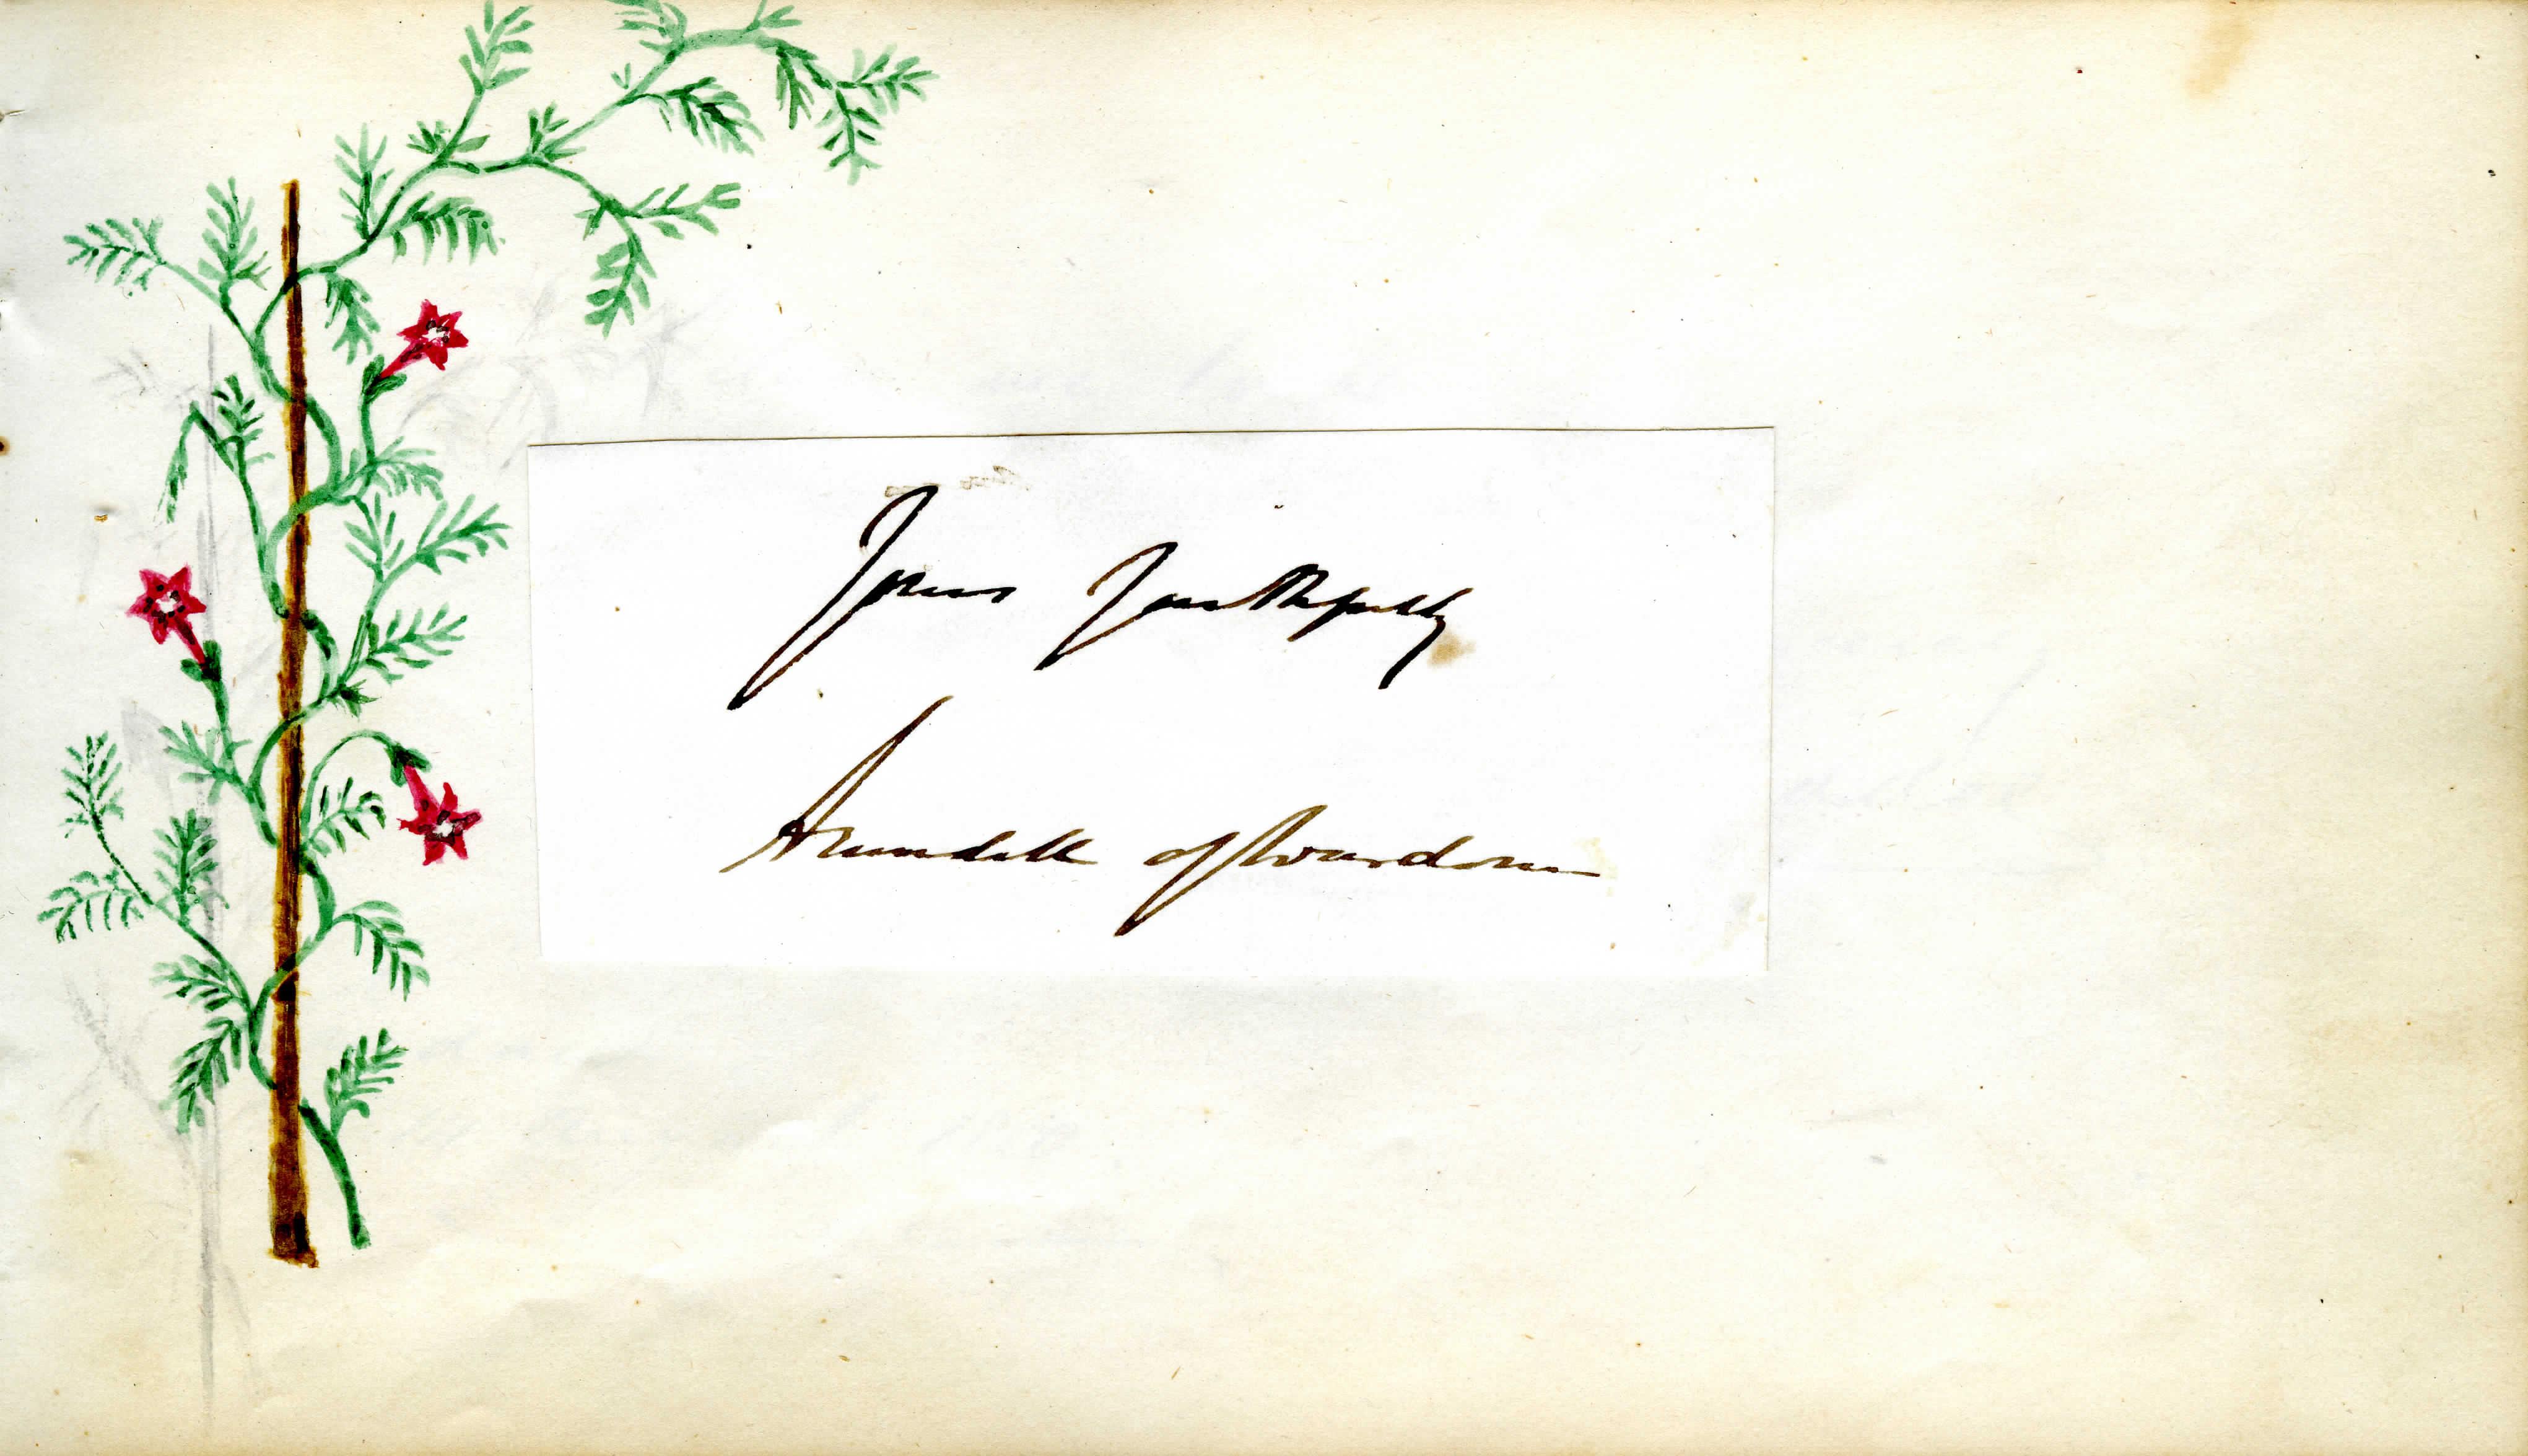 Yours faithfully
Arundell of Wardour